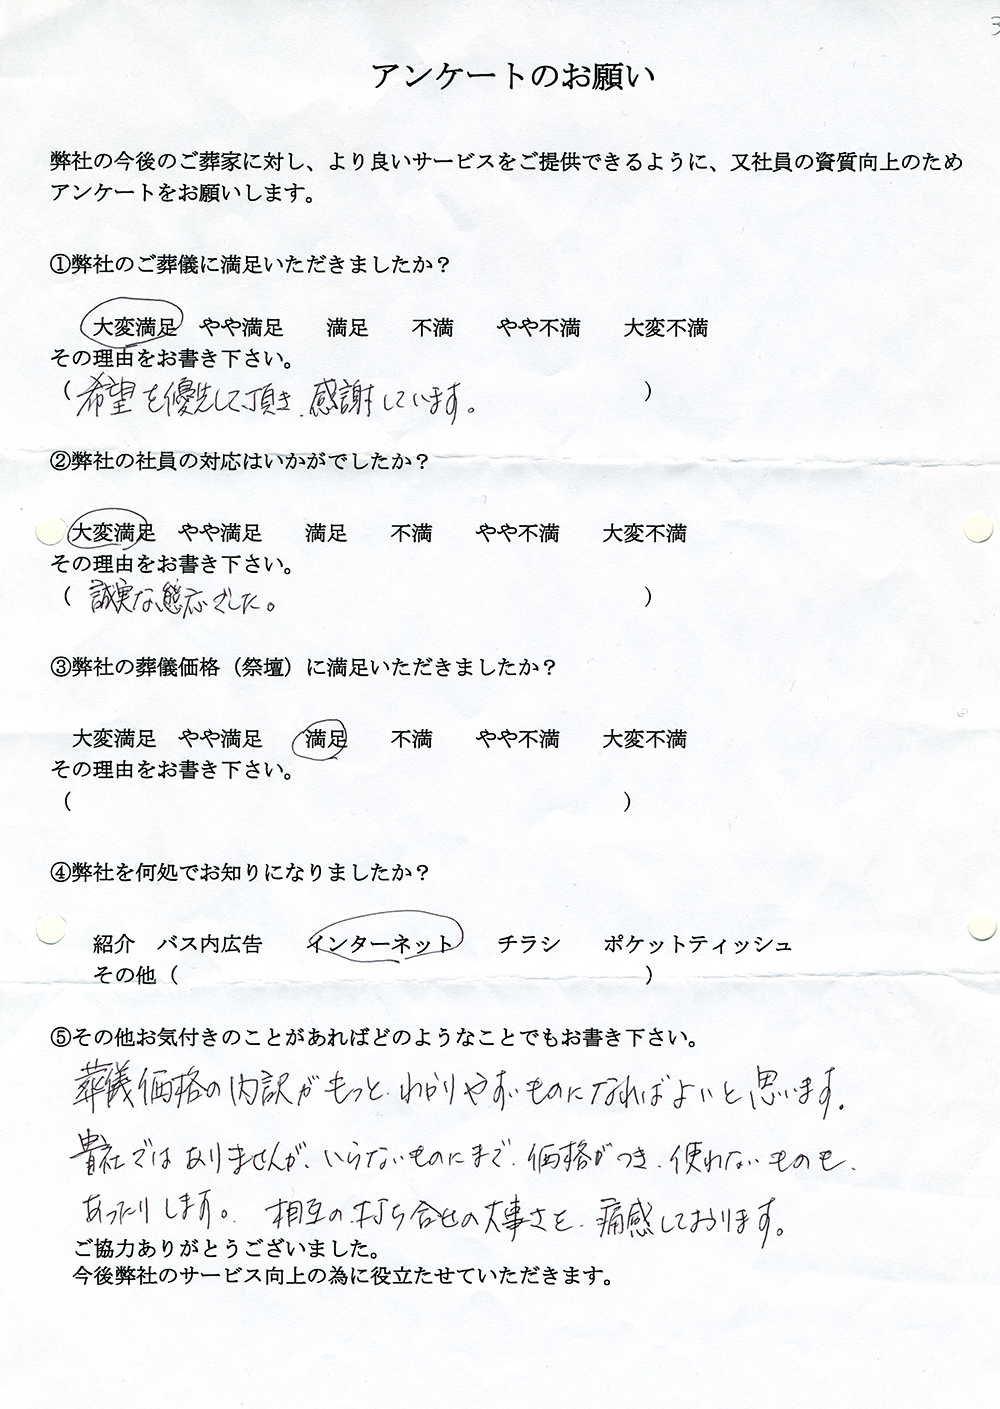 3
アンケートのお願い
弊社の今後のご葬家に対し、より良いサービスをご提供できるように、又社員の資質向上のため
アンケートをお願いします。
①弊社のご葬儀に満足いただきましたか？
大変満足　やや満足　　満足　　不満　　やや不満　　大変不満
その理由をお書き下さい。
（希望を優先して頂き、感謝しています。）
②弊社の社員の対応はいかがでしたか？
大変満足　やや満足　　満足　　不満　　やや不満　　大変不満
その理由をお書き下さい。
（誠実な態応でした。）
③弊社の葬儀価格（祭壇）に満足いただきましたか？
大変満足　やや満足　　満足　　不満　　やや不満　　大変不満
その理由をお書き下さい。
（　）
④弊社を何処でお知りになりましたか？
紹介　バス内広告　　インターネット　　チラシ　　ポケットティッシュ
その他（　）
⑤その他お気付きのことがあればどのようなことでもお書き下さい。
葬儀価格の内訳がもっと、わかりやすいものになればよいと思います。
貴社ではありませんが、いらないものにまで、価格がつき、使れないものも、
あったりします。相互の打ち合せの大事さを、痛感しております。
ご協力ありがとうございました。
今後弊社のサービス向上の為に役立たせていただきます。